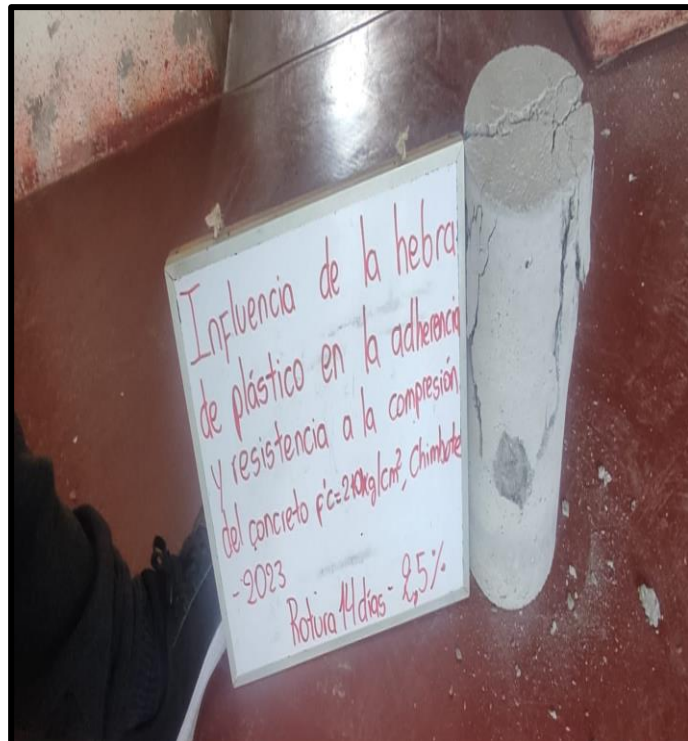 Influencia de la hebra
de plástico en la adherencia
y resistencia a la compresión,
del concreto f'c=210kg/cm², Chimbote
-2023
Rotura 14 días - 2,5%